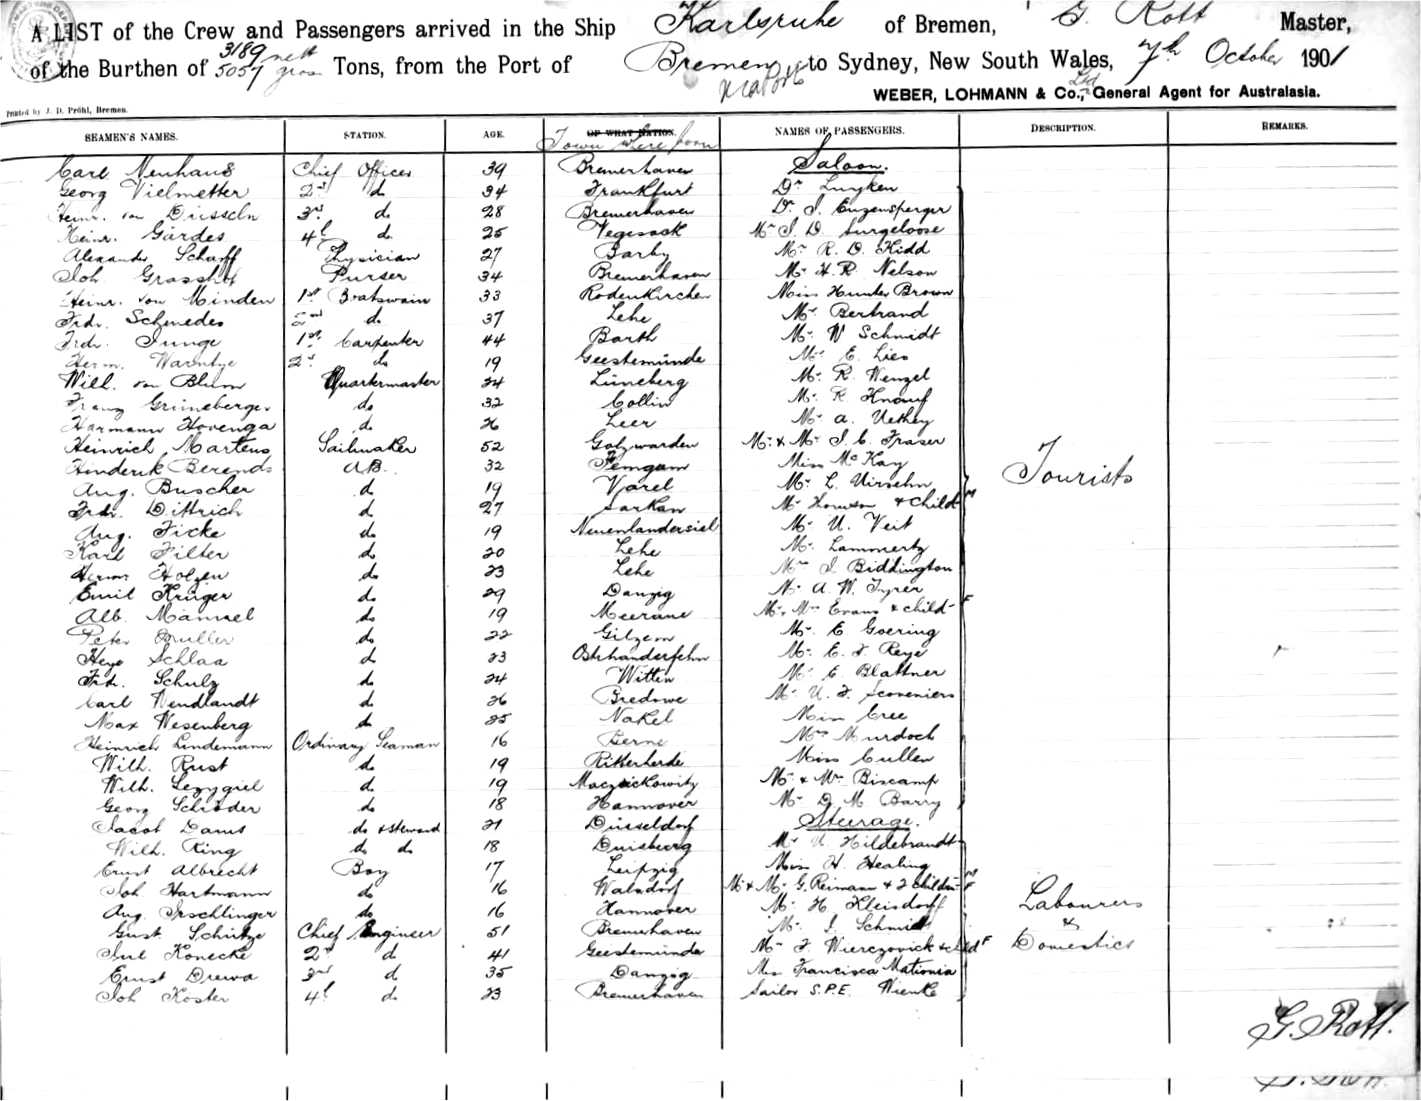 A LIST of the Crew and Passengers arrived in the Ship Karlsruhe of Bremen, G. Rott Master,
of the Burthen of 3189 nett 5057 gross Tons, from the Port of Bremen to Sydney, New South Wales, 7th October 1901
via Ports
WEBER, LOHMANN & Co., Ltd General Agent for Australasia.
Printed by J. D. Pröhl, Bremen.
SEAMEN'S NAMES. STATION. AGE. OF WHAT NATION. NAMES OF PASSENGERS. DESCRIPTION. REMARKS.
Town where from
Carl Neuhaus Chief Officer 39 Bremerhaven Saloon.
Georg Vielmetter 2nd d 34 Frankfurt Dr Luyken
Heinr. von Düsseln 3rd d. 28 Bremerhaven Dr. I. Enzensperger
Heinr. Gardes 4th d. 25 Vegesack Mr I. D. Surgeloose
Alexander Scharff Physician 27 Barby Mr R. D. Kidd
Joh. Grasshof Purser 34 Bremerhaven Mr H. R. Nelson
Heinr. von Minden 1st Boatswain 33 Rodenkirchen Miss Hunter Brown
Frdr. Schmedes 2nd d. 37 Lehe Mr Bertrand
Frdr. Junge 1st Carpenter 44 Barth Mr W Schmidt
Herm. 2nd do 19 Geestemünde Mr E. Lies
Wilh. von Blum Quartermaster 24 Lüneberg Mr. R. Wenzel
Franz Grimeberger do 32 Collin Mr. R Knauf
Harmann Hovenga do 26 Leer Mr A.
Heinrich Martens Sailmaker 52 Golzwarden Mr & Mrs J. C. Fraser
Hinderik Berends AB. 32 Jemgum Miss McKay
Aug. Buscher d 19 Varel Mr. L.
Frdr. Dittrich d 27 Sarkau Mrs & Child M
Aug. Ficke do 19 Neuenlandersiel Mr. U. Veit
Karl Filter do 20 Lehe Mr. Lammertz
Herm Holzen do 23 Lehe Mrs J. Biddington
Emil Krüger do 29 Danzig Mr A. W. Tyrer
Alb. Mannel do 19 Meerane Mr. Mrs Evans & child F
Peter Muller do 22 Gilzem Mr. E Goering
Heye Schlaa d 23 Osthanderfehn Mr. E. F. Reye
Frdr. Schulz do 24 Witten Mr. E. Blattner
Carl Wendlandt d 26 Bredowe Mr U. F. Scoveniers
Max Wesenberg do 25 Nakel Miss Cree
Heinrich Lindemann Ordinary Seaman 16 Berne Mrs Murdoch
Wilh. Rust do 19 Ritterhude Miss Cullen
Wilh. Lezygiel do 19 Maczeickowitz Mr & Mrs Biscamp
Georg Schröder do 18 Hannover Mr D M Barry
Jacob Dams do & Steward 21 Düsseldorf Steerage.
Wilh. King do do 18 Duisburg Mr U. Hildebrandt
Ernst Albrecht Boy 17 Leipzig Miss H. Healing
Joh. Hartmann do 16 Walsdorf Mr & Mrs G. Reimann & 2 Children M F
Aug. Irschlinger do 16 Hannover Mr. H. Kleisdorff
Gust. Schütze Chief Engineer 51 Bremerhaven Mr. J. Schmidt
Jul Konecke 2nd d 41 Geestemünde Mrs F Wierczovick & child F
Ernst Drewa 3rd d 35 Danzig Mrs Francisca Mationia
Joh Koster 4th do 23 Bremerhaven Sailor S.P.E. Wienke
Tourists
Labourers
&
Domestics
G. Rott.